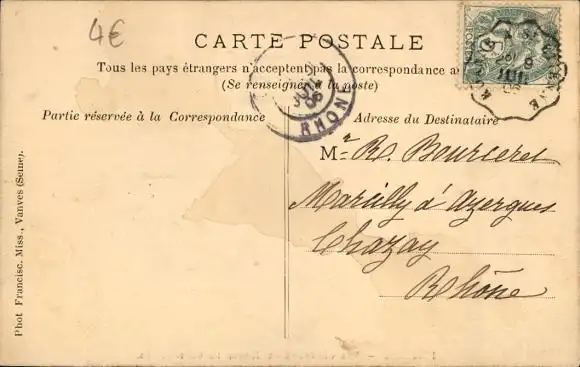 4€
CARTE POSTALE
Tous les pays étrangers n'acceptent pas la correspondance a
(Se renseigner à la poste)
Partie réservée à la Correspondance
Adresse du Destinataire
JUIL
06
RHONE
9
Mr R. Bourceret
Marcilly d'Azergues
Chazay
Rhône
Phot Francisc. Miss., Vanves (Seine).